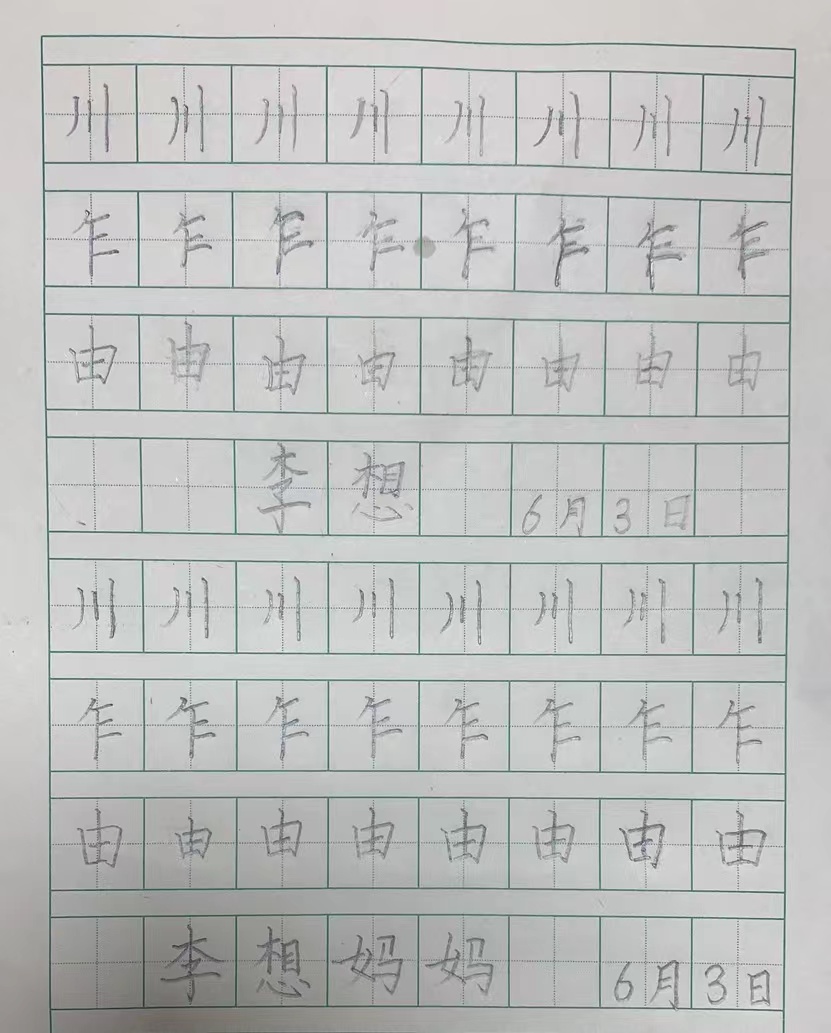 川川川川川川川川
乍乍乍乍乍乍乍乍
由由由由由由由由
李想 6月3日
川川川川川川川川
乍乍乍乍乍乍乍乍
由由由由由由由由
李想妈妈 6月3日